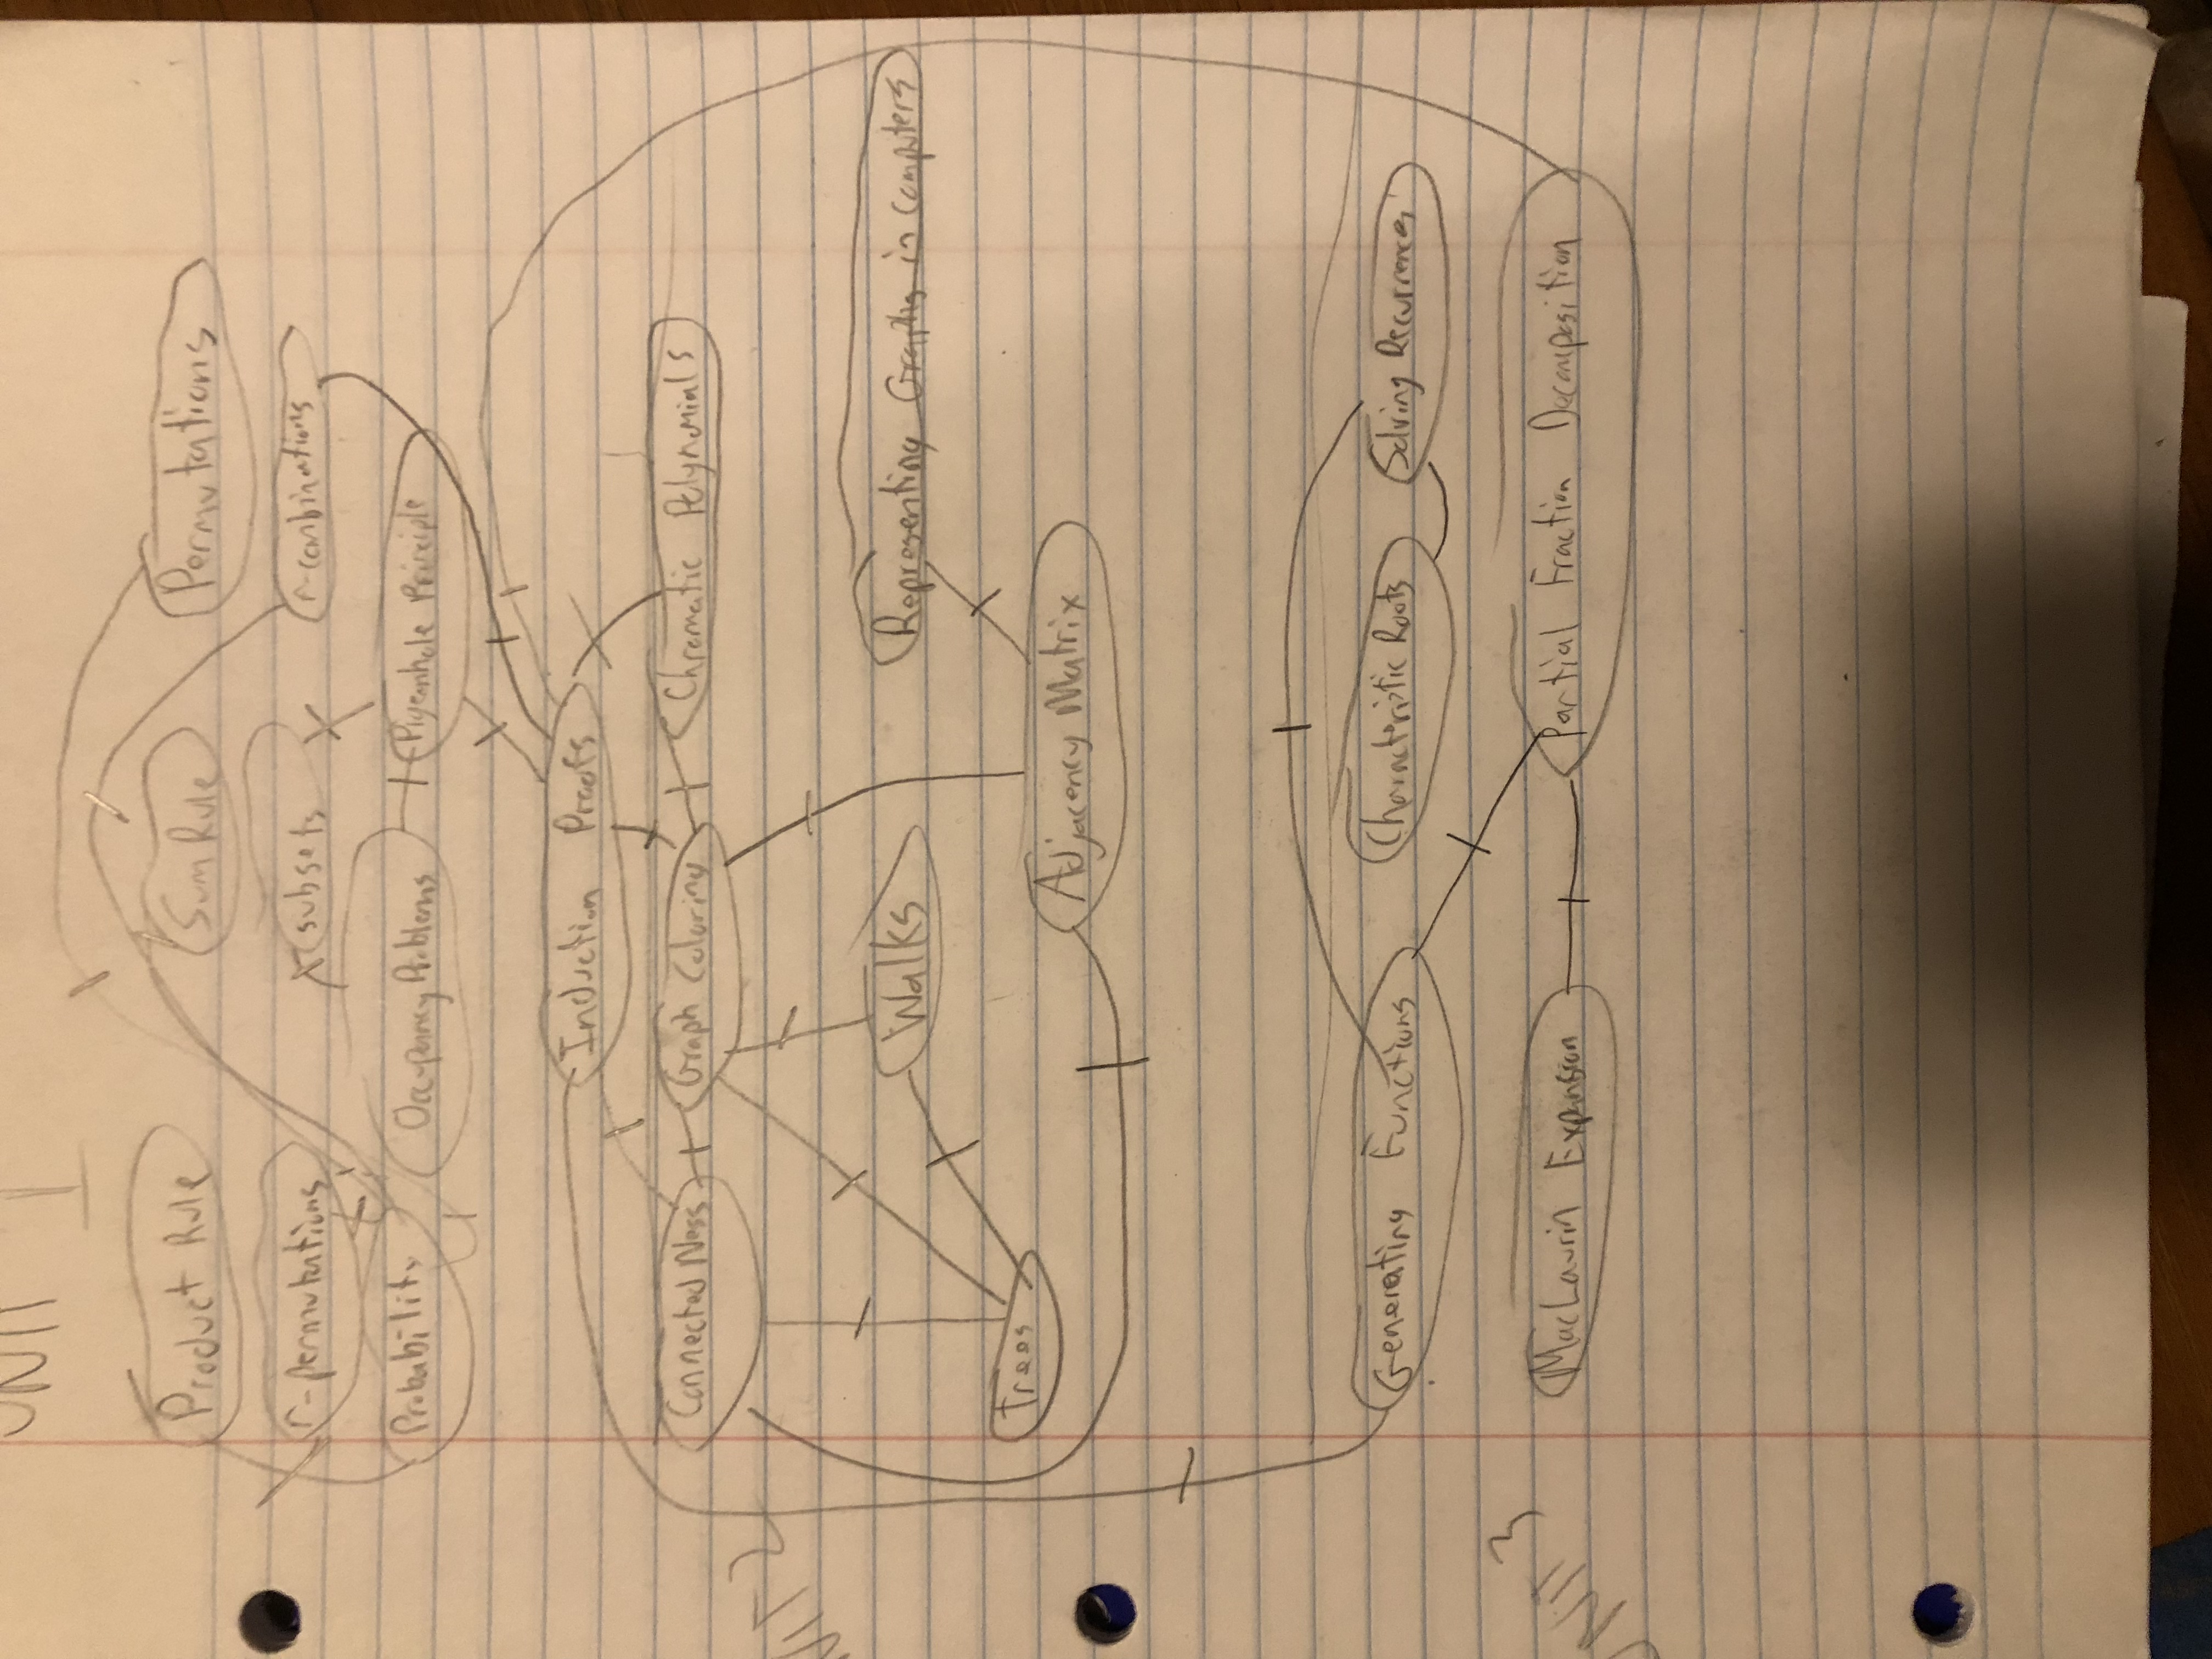 UNIT 1
Product Rule Sum Rule Permutations
r-permutations subsets r-combinations
Probability Occupancy Problems Pigeonhole Principle
Induction Proofs
Connected Ness Graph Coloring Chromatic Polynomials
UNIT 2
Walks Representing Graphs in computers
Trees
Adjacency Matrix
Generating Functions Characteristic Roots Solving Recurrences
UNIT 3
MacLaurin Expansion Partial Fraction Decomposition